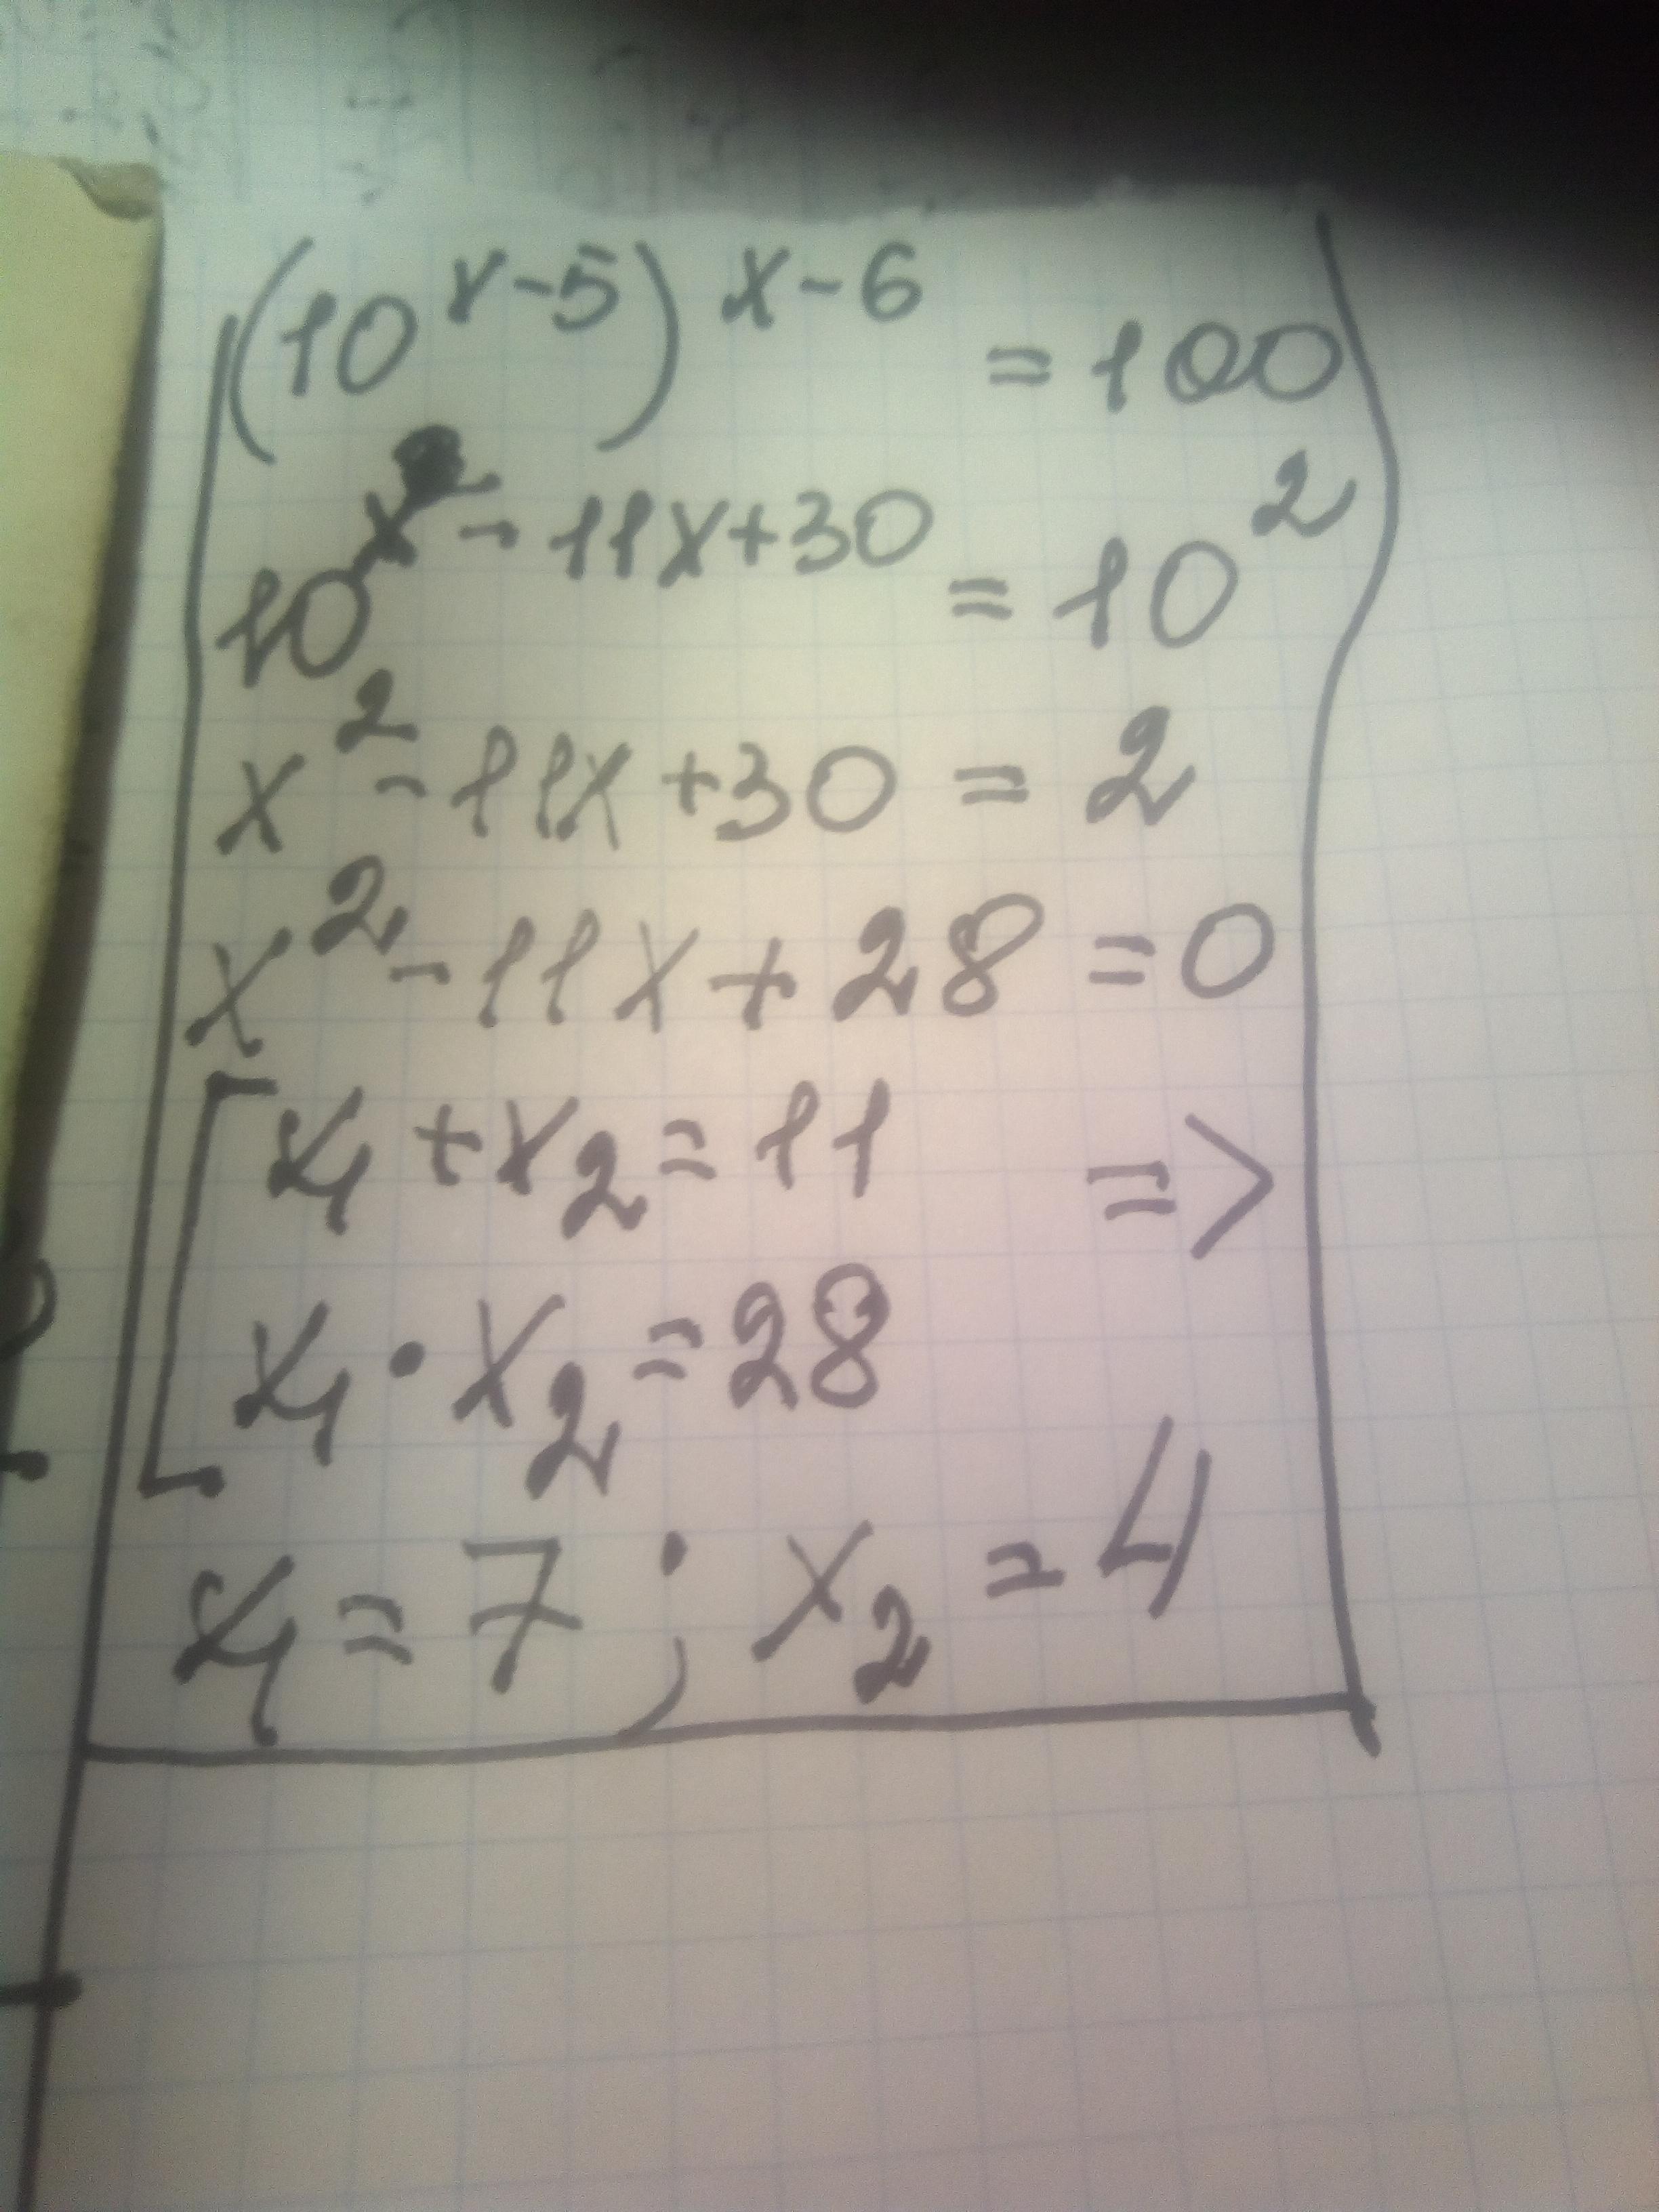 (10^{x-5})^{x-6} = 100
10^{x^2-11x+30} = 10^2
x^2-11x+30 = 2
x^2-11x+28 = 0
[x_1+x_2=11 =>
x_1·x_2=28
x_1=7; x_2=4